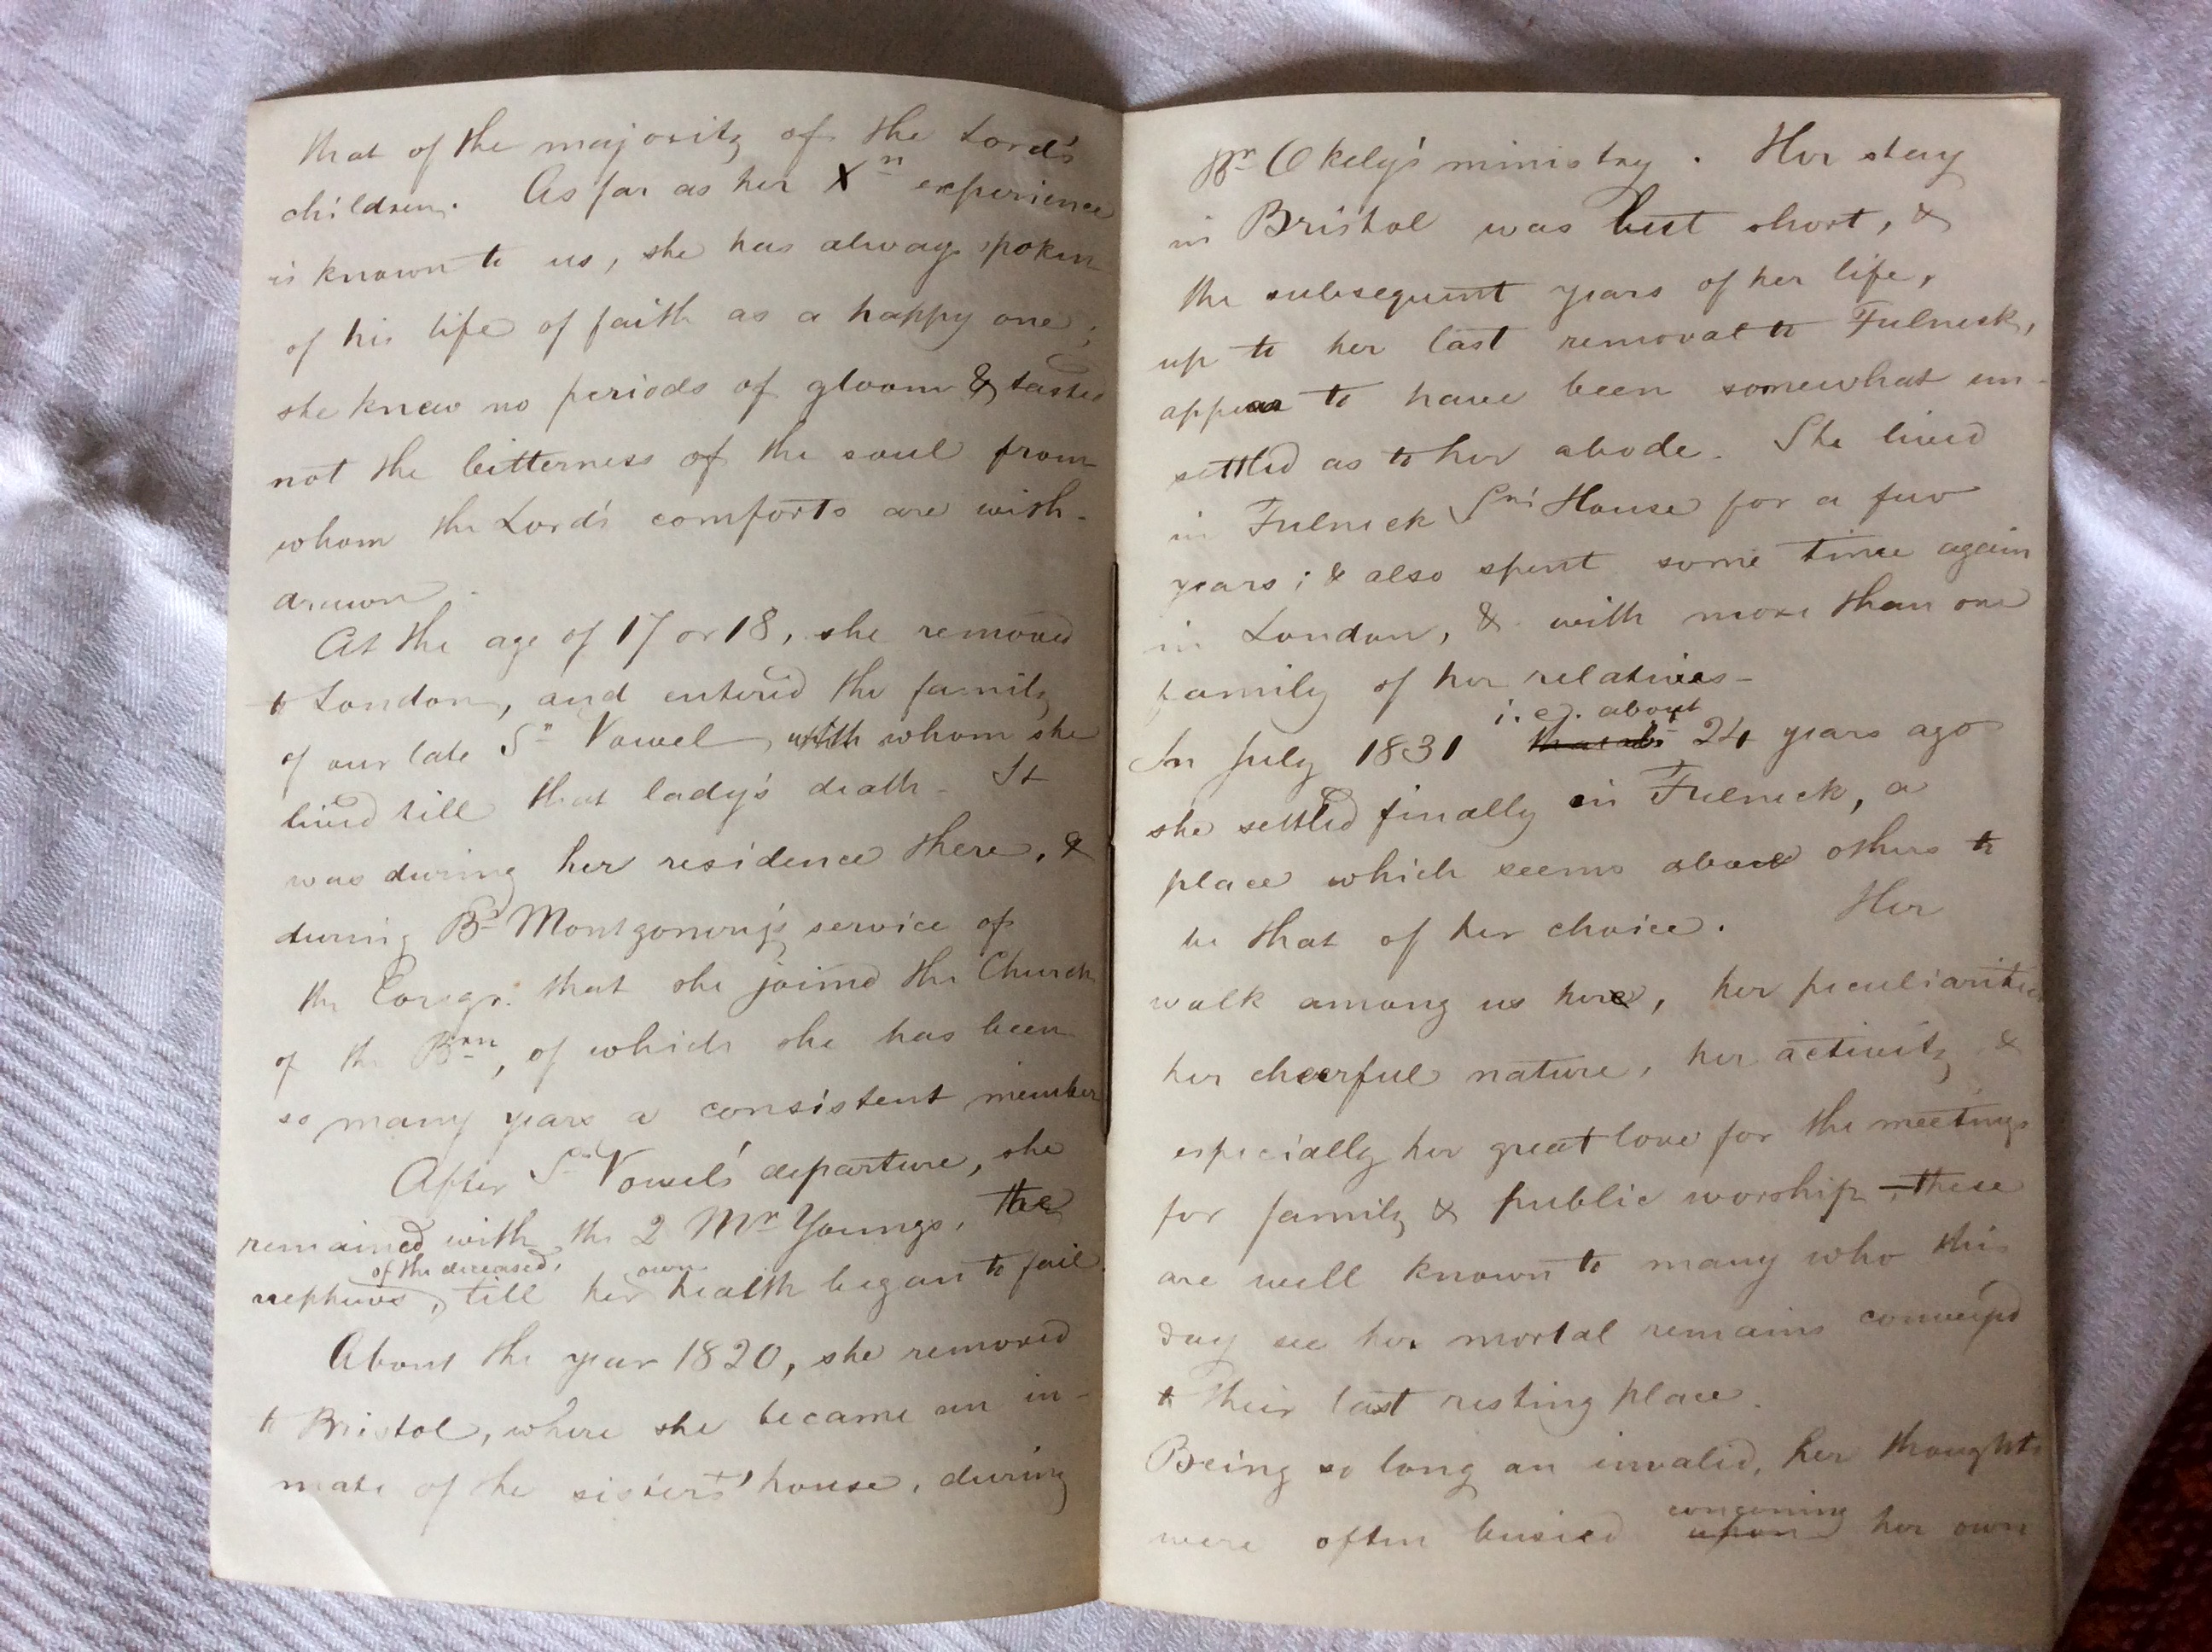 that of the majority of the Lord's
children. As far as her Xn experience
is known to us, she has always spoken
of his life of faith as a happy one;
she knew no periods of gloom & tasted
not the bitterness of the soul from
whom the Lord's comforts are with-
drawn.
At the age of 17 or 18, she removed
to London, and entered the family
of our late Sr Vowel with whom she
lived till that lady's death. It
was during her residence there, &
during Br Montgomery's service of
the Congr. that she joined the Church
of the Brn, of which she has been
so many years a consistent member
After Sr Vowel's departure, she
remained with the 2 Mr Youngs, the
of the deceased, own
nephews, till her health began to fail.
About the year 1820, she removed
to Bristol, where she became an in-
mate of the sisters' house, during
Br Okely's ministry. Her stay
in Bristol was but short, &
the subsequent years of her life,
up to her last removal to Fulneck,
appear to have been somewhat un-
settled as to her abode. She lived
in Fulneck Srs' House for a few
years; & also spent some time again
in London, & with more than one
family of her relatives-
i.e. about
In July 1831 that is 24 years ago
she settled finally in Fulneck, a
place which seems above others to
be that of her choice. Her
walk among us here, her peculiarities
her cheerful nature, her activity &
especially her great love for the meetings
for family & public worship, these
are well known to many who this
day see her mortal remains conveyed
to their last resting place.
Being so long an invalid, her thoughts
concerning
were often busied upon her own